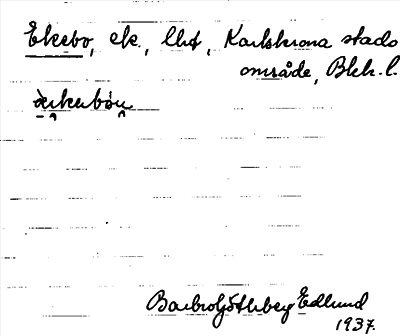 Ekebo, ek., lht, Karlskrona stads
område, Blek. l.
Barbro Götberg Edlund
1937.